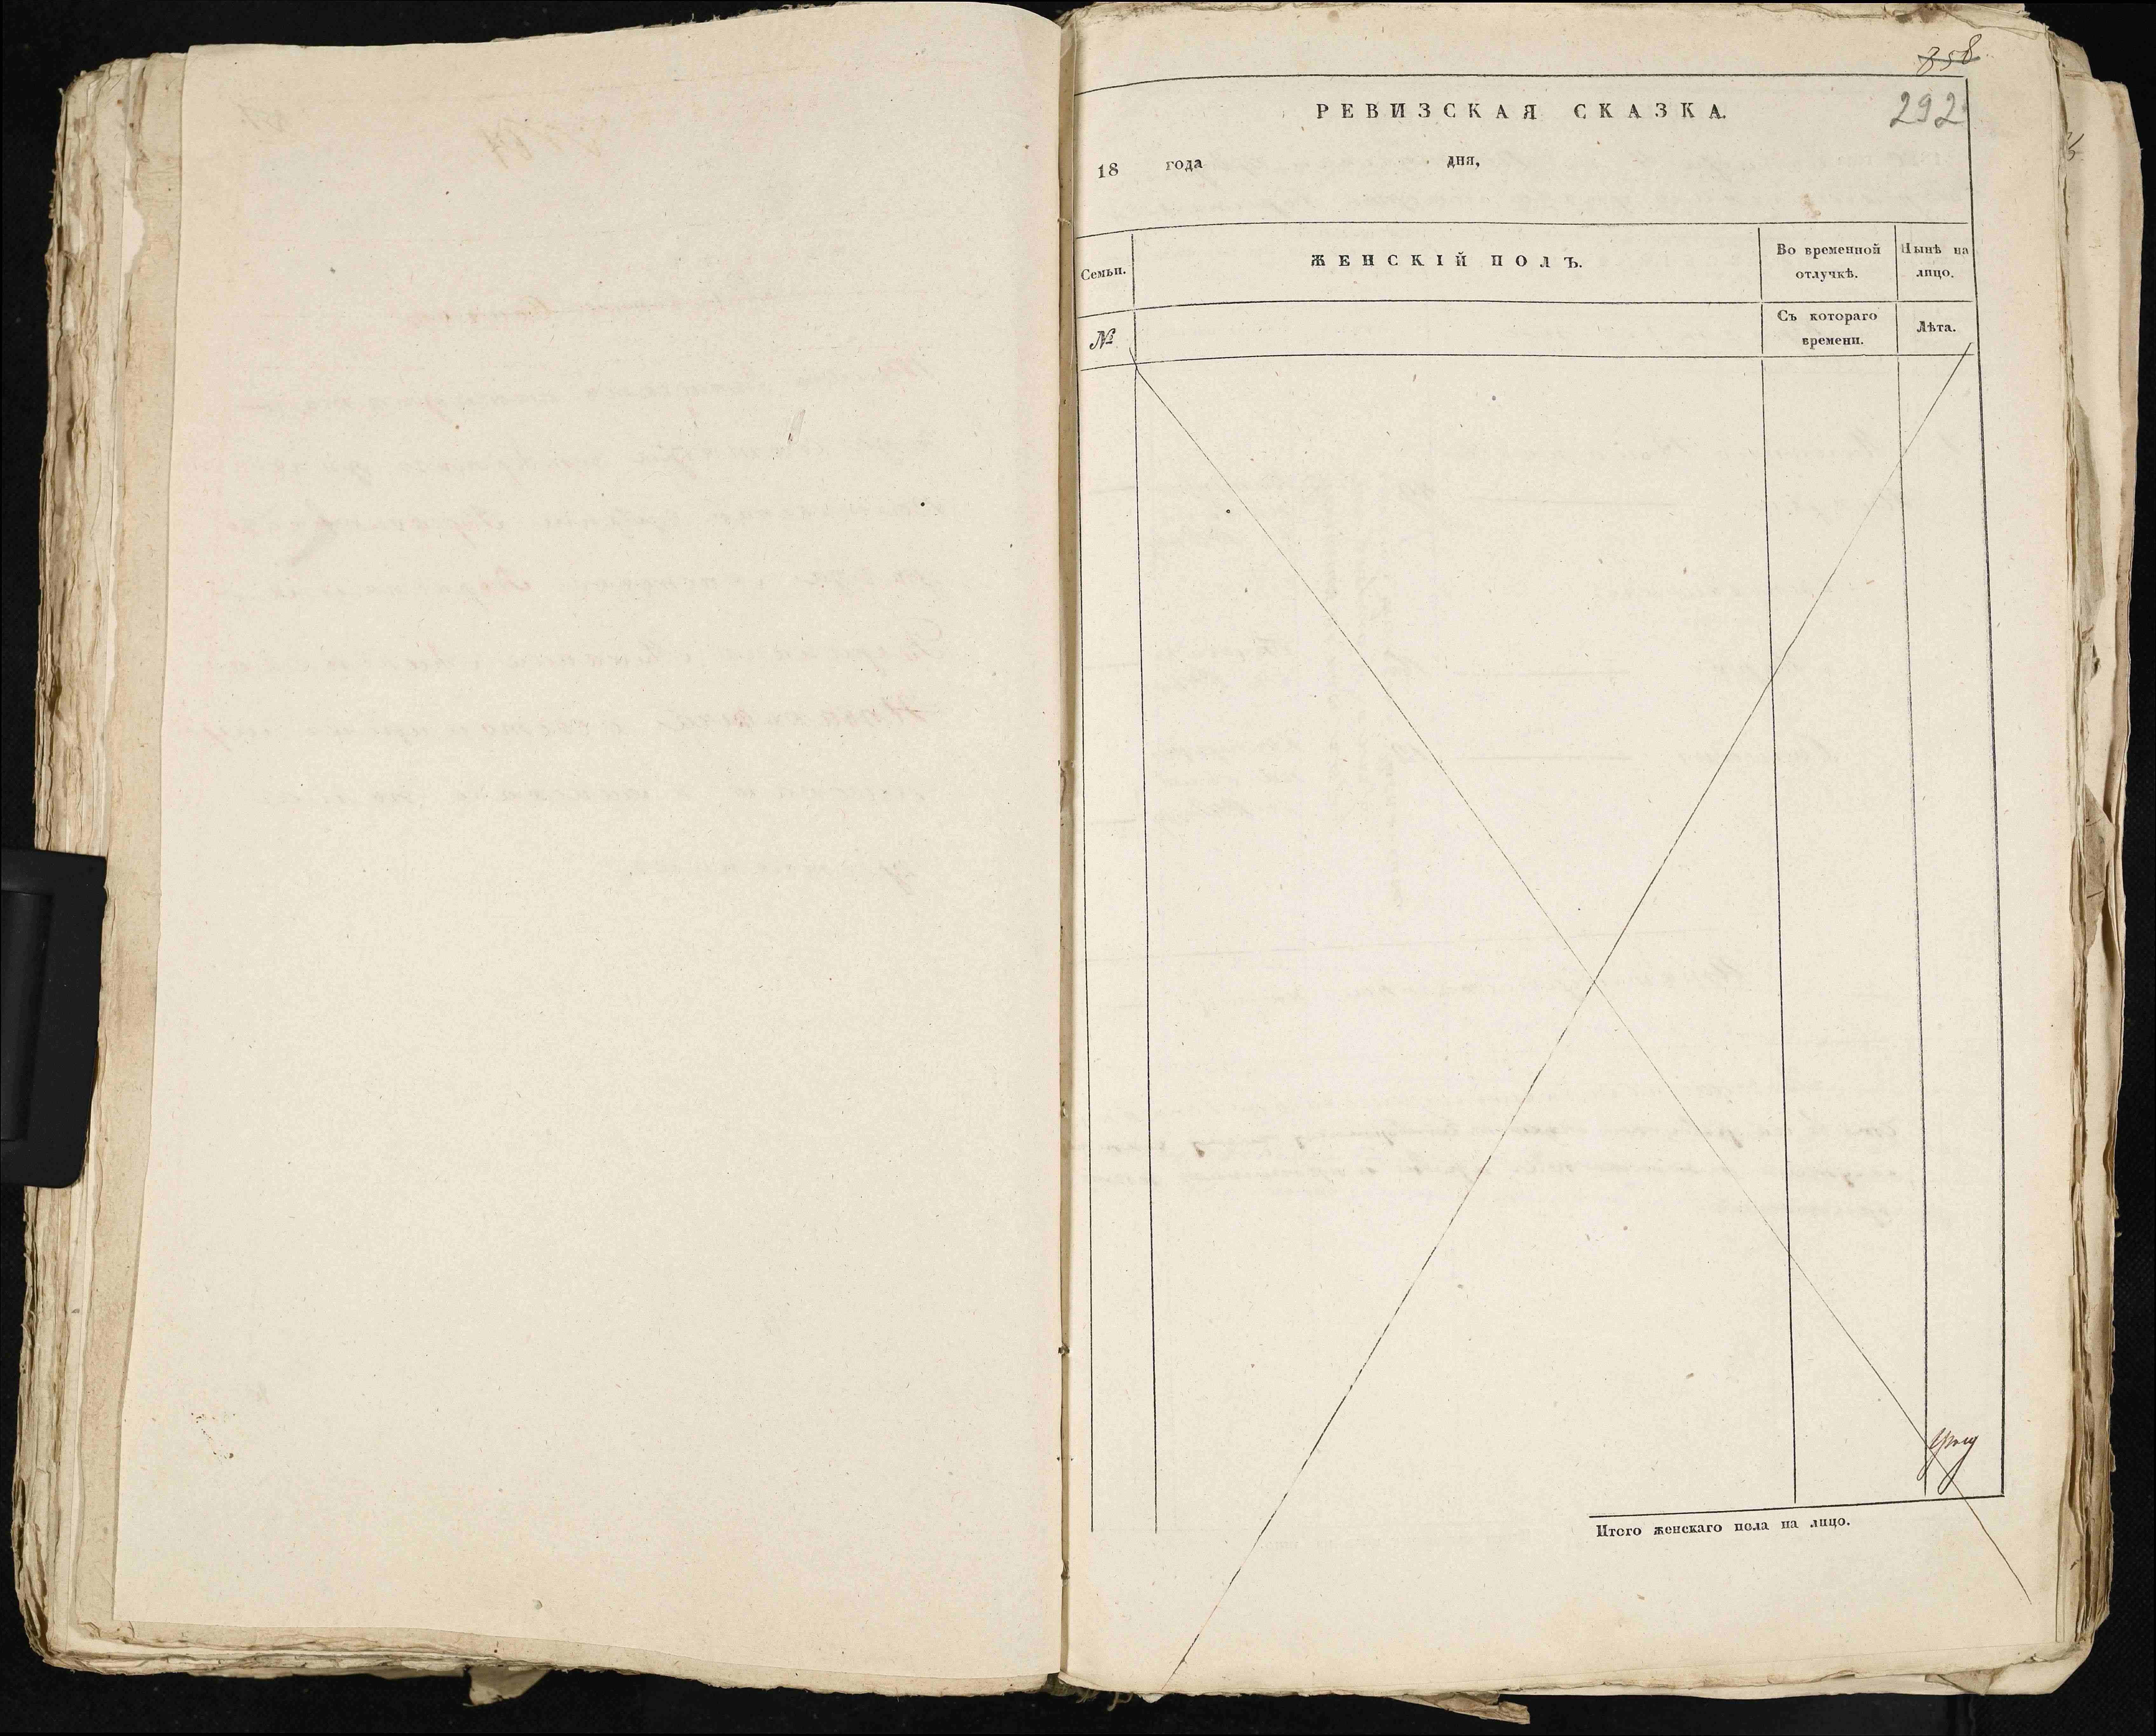 358
292
РЕВИЗСКАЯ СКАЗКА.
18 года дня,
Семьи. ЖЕНСКІЙ ПОЛЪ. Во временной отлучкѣ. Нынѣ на лицо.
№ Съ котораго времени. Лѣта.
Итого женскаго пола на лицо.